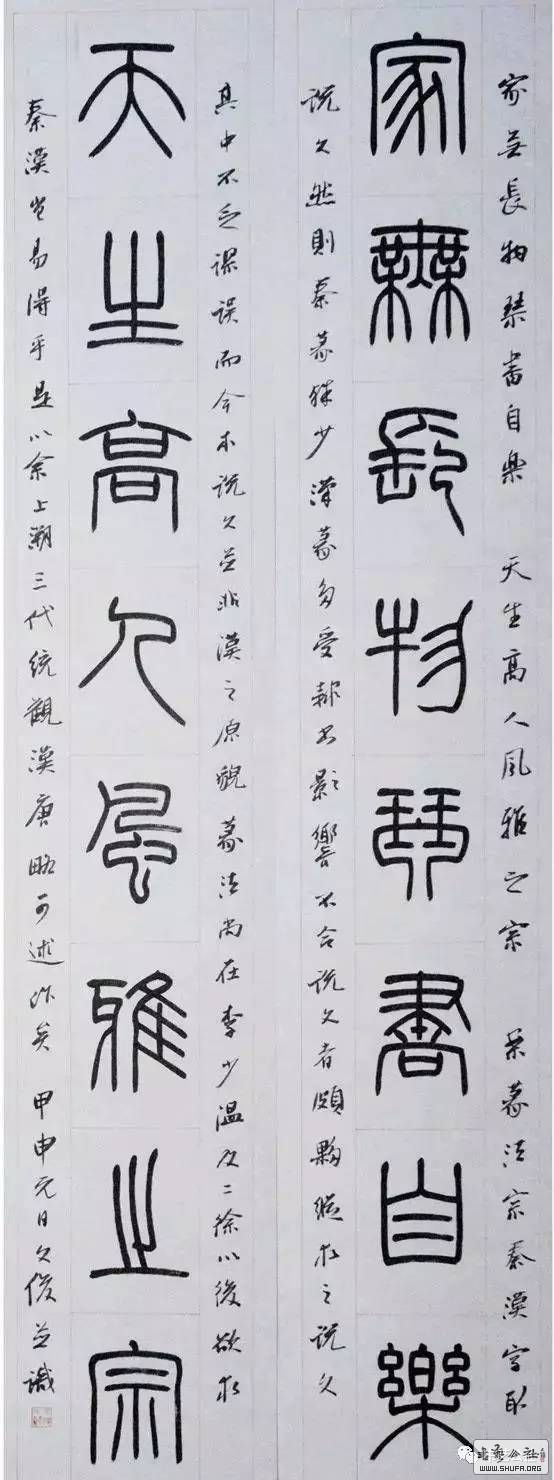 家無長物琴書自樂 天生高人風雅之宗 余篆法宗秦漢字取
家無長物琴書自樂
說文然則秦篆殊少漢篆多受隸書影響不合說文者頗夥縱求之說文
其中不乏謬誤而今本說文並非漢之原貌篆法尚在李少溫及二徐以後欲求
天生高人風雅之宗
秦漢豈易得乎是以余上溯三代統觀漢唐略可述作矣 甲申元日文俊並識
書藝公社
WWW.SHUFA.ORG